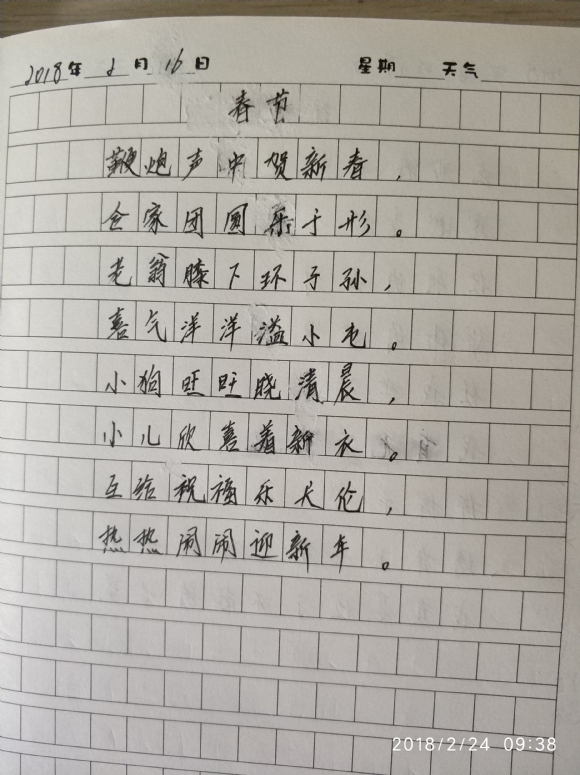 2018年2月16日 星期 天气
春节
鞭炮声中贺新春，
仓家团圆乐于形。
老翁膝下环子孙，
喜气洋洋溢小屯。
小狗旺旺晓清晨，
小儿欣喜着新衣。
互给祝福乐天伦，
热热闹闹迎新年。
2018/2/24 09:38